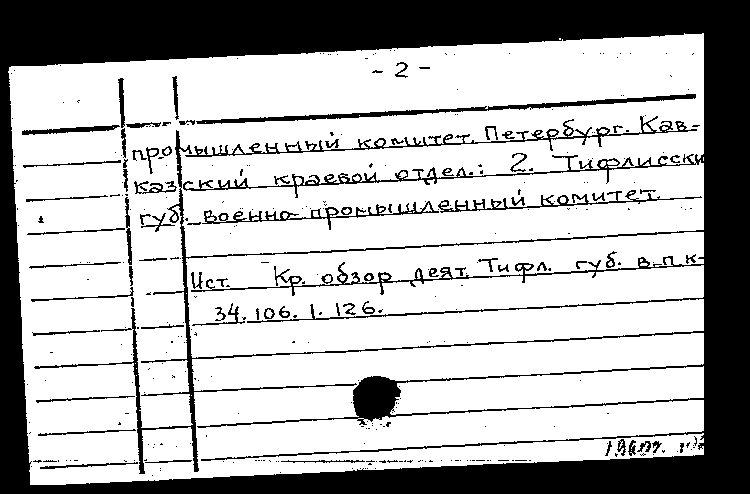 - 2 -
промышленный комитет. Петербург. Кав-
казский краевой отдел.: 2. Тифлисски
губ. военно-промышленный комитет.
Ист. Кр. обзор деят. Тифл. губ. в.п.к-
34.106.1.126.